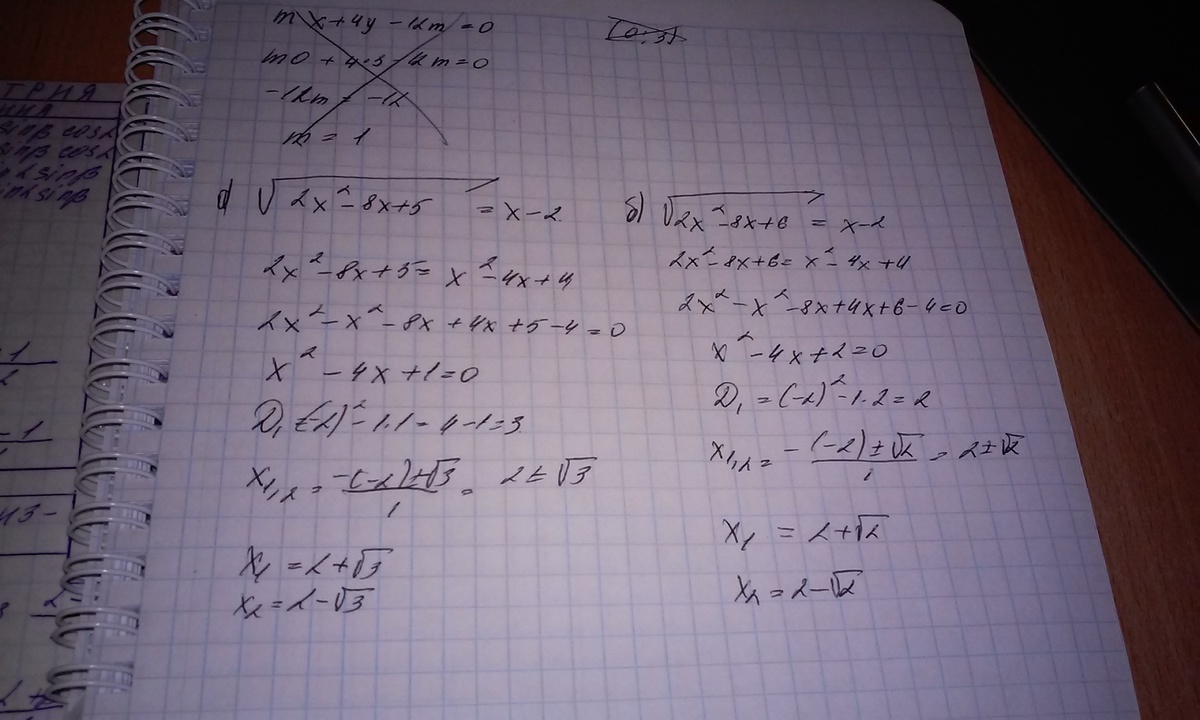 mx+4y-12m=0
m0+4·3-12m=0
-12m=-12
m=1
(0;3)
а) √(2x²-8x+5) = x-2
2x²-8x+5= x²-4x+4
2x²-x²-8x+4x+5-4=0
x²-4x+1=0
D₁=(-2)²-1·1=4-1=3
x₁,₂ = (-(-2)±√3)/1 = 2±√3
x₁=2+√3
x₂=2-√3
б) √(2x²-8x+6) = x-2
2x²-8x+6= x²-4x+4
2x²-x²-8x+4x+6-4=0
x²-4x+2=0
D₁=(-2)²-1·2=2
x₁,₂= (-(-2)±√2)/1 = 2±√2
x₁=2+√2
x₂=2-√2
ТРИЯ
sinβ cosα
sinβ cosα
sinβ
sinα sinβ